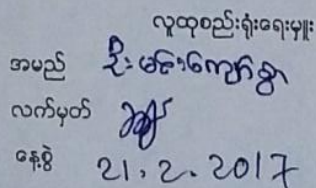 လူထုစည်းရုံးရေးမှူး
အမည် ဦးမင်းကျော်စွာ
လက်မှတ်
နေ့စွဲ 21.2.2017